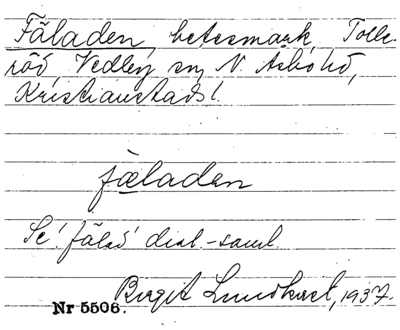 Fäladen, betesmark, Tolle-
röd Vedby sn, N. Åsbo hd,
Kristianstads l.
fæladen
Se 'fälad' dial.-saml.
Birgit Lundkvist, 1937.
Nr 5506.